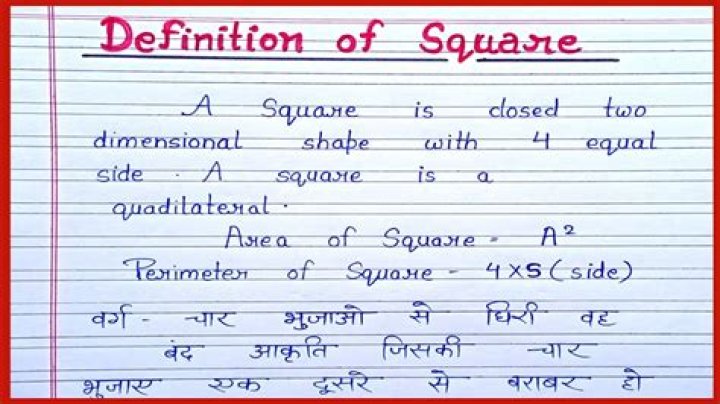 Definition of Square
A Square is closed two
dimensional shape with 4 equal
side . A square is a
quadilateral .
Area of Square - A²
Perimeter of Square - 4×S (side)
वर्ग - चार भुजाओ से घिरी वह
बंद आकृति जिसकी चार
भुजाए एक दूसरे से बराबर हो